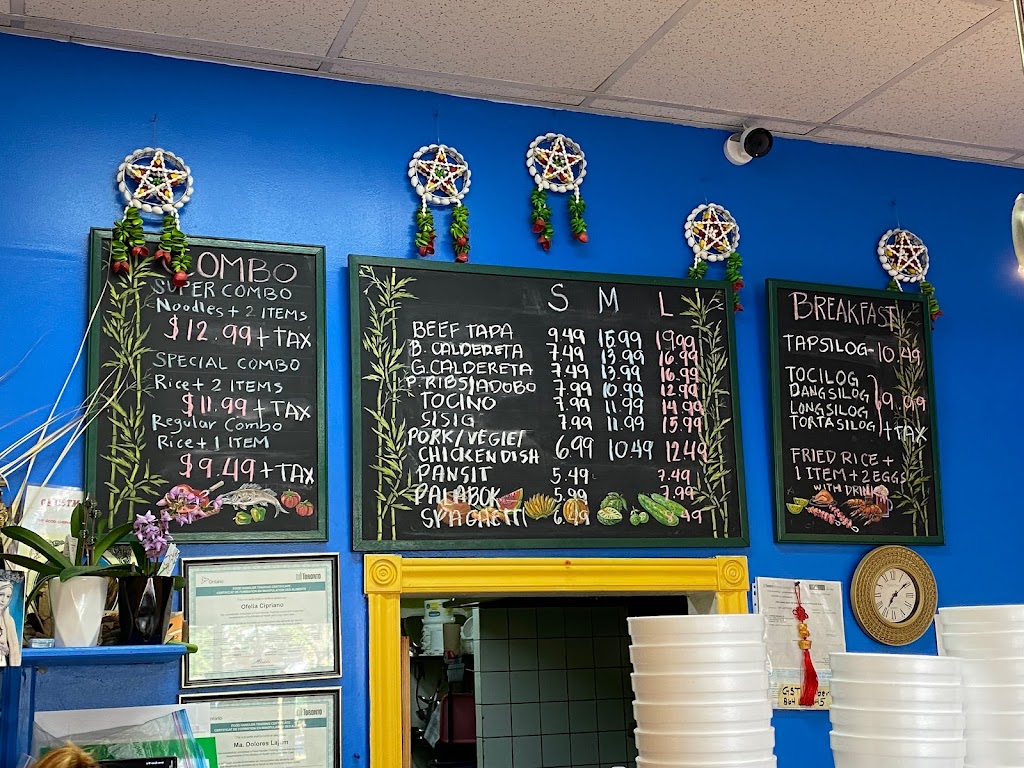 COMBO
SUPER COMBO
Noodles + 2 ITEMS
$12.99 + TAX
SPECIAL COMBO
Rice + 2 ITEMS
$11.99 + TAX
Regular Combo
Rice + 1 ITEM
$9.49 + TAX
S M L
BEEF TAPA 9.49 15.99 19.99
B. CALDERETA 7.49 13.99 16.99
G. CALDERETA 7.49 13.99 16.99
P. RIBS/ADOBO 7.99 10.99 12.99
TOCINO 7.99 11.99 14.99
SISIG 7.99 11.99 15.99
PORK/VEGIET
CHICKEN DISH 6.99 10.49 12.49
PANSIT 5.49 7.49
PALABOK 5.99 7.99
SPAGHETTI
BREAKFAST
TAPSILOG - 10.49
TOCILOG
BANGSILOG
LONGSILOG
TORTASILOG
9.99
+ TAX
FRIED RICE +
1 ITEM + 2 EGGS
WITH DRINK
Ontario TORONTO
Ofelia Cipriano
TORONTO
Ma. Dolores Lajom
GST